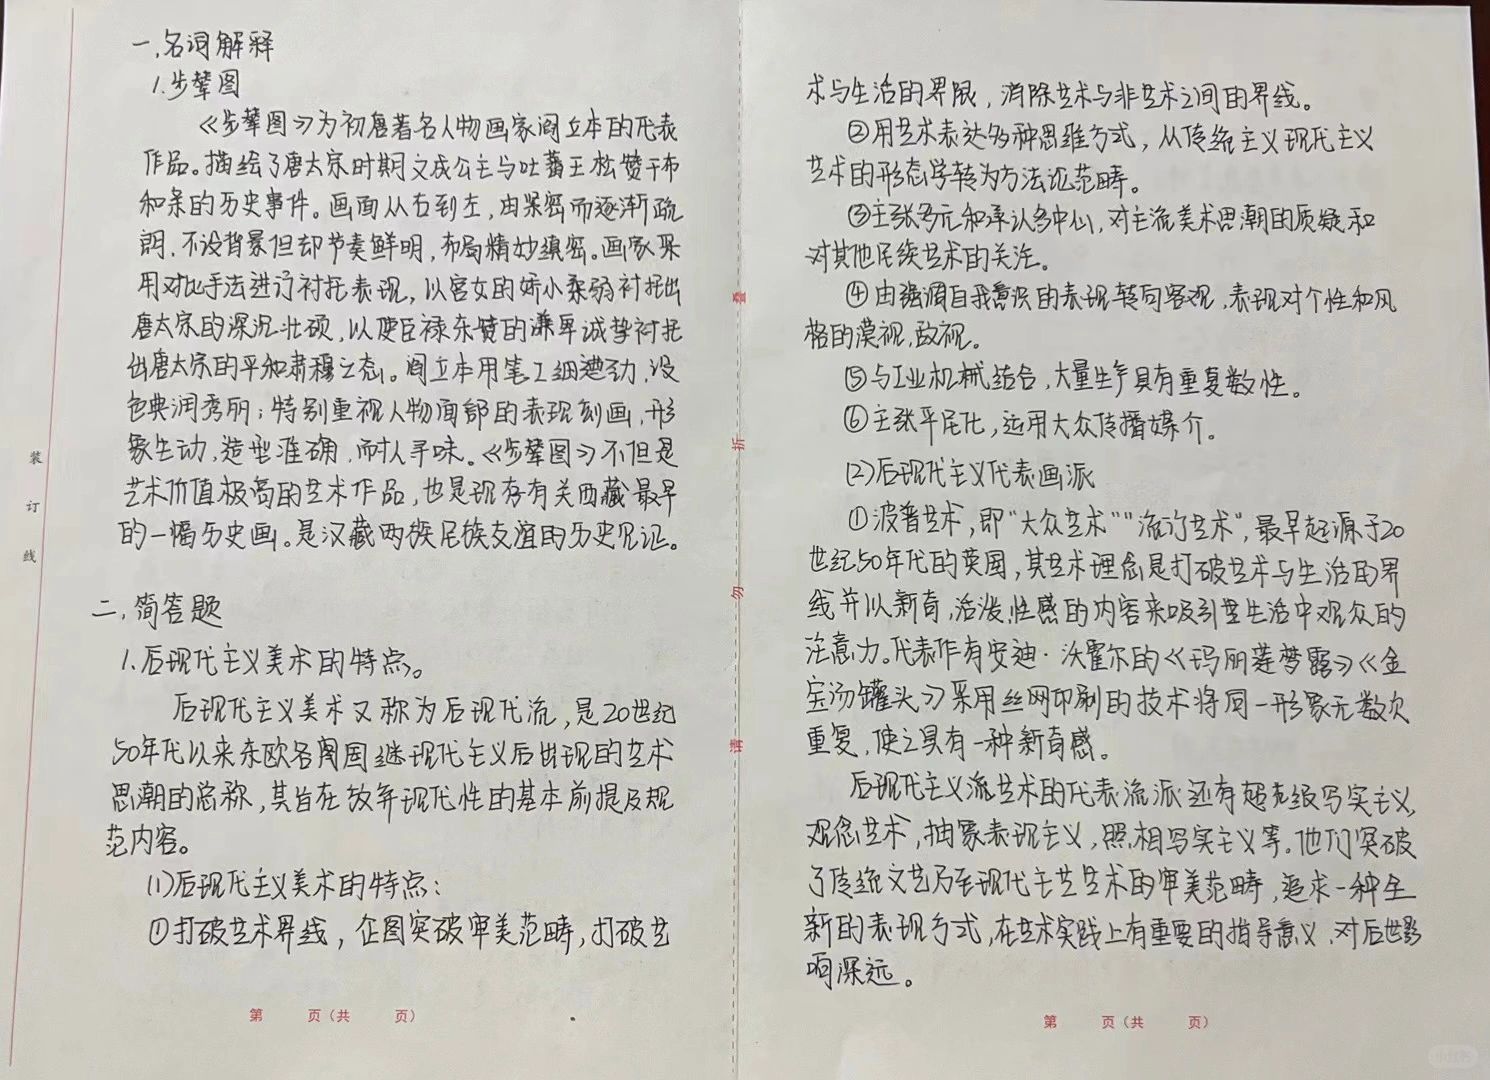 一、名词解释
1.步辇图
《步辇图》为初唐著名人物画家阎立本的代表
作品。描绘了唐太宗时期文成公主与吐蕃王松赞干布
和亲的历史事件。画面从右到左,由紧密而逐渐疏
朗,不设背景但却节奏鲜明,布局精妙缜密。画家采
用对比手法进行衬托表现,以宫女的娇小柔弱衬托出
唐太宗的深沉壮硕,以使臣禄东赞的谦卑诚挚衬托
出唐太宗的平和肃穆之态。阎立本用笔工细遒劲,设
色典润秀丽;特别重视人物面部的表现刻画,形
象生动,造型准确,耐人寻味。《步辇图》不但是
艺术价值极高的艺术作品,也是现存有关西藏最早
的一幅历史画。是汉藏两族民族友谊的历史见证。
二、简答题
1.后现代主义美术的特点。
后现代主义美术又称为后现代流,是20世纪
50年代以来东欧各阁国继现代主义后出现的艺术
思潮的总称,其旨在放弃现代性的基本前提及规
范内容。
(1)后现代主义美术的特点:
①打破艺术界线,企图突破审美范畴,打破艺
术与生活的界限,消除艺术与非艺术之间的界线。
②用艺术表达多种思维方式,从传统主义现代主义
艺术的形态学转为方法论范畴。
③主张多元和承认多中心,对主流美术思潮的质疑和
对其他民族艺术的关注。
④由强调自我意识的表现转向客观,表现对个性和风
格的漠视,敌视。
⑤与工业机械结合,大量生产具有重复数性。
⑥主张平民化,运用大众传播媒介。
(2)后现代主义代表画派
①波普艺术,即“大众艺术”“流行艺术”,最早起源于20
世纪50年代的英国,其艺术理念是打破艺术与生活的界
线并以新奇,活泼,性感的内容来吸引世生活中观众的
注意力。代表作有安迪·沃霍尔的《玛丽莲梦露》《金
宝汤罐头》采用丝网印刷的技术将同一形象无数次
重复,使之具有一种新奇感。
后现代主义流艺术的代表流派还有超级写实主义,
观念艺术,抽象表现主义,照相写实主义等。他们突破
了传统文艺乃至现代主艺艺术的审美范畴,追求一种全
新的表现方式,在艺术实践上有重要的指导意义,对后世影
响深远。
装
订
线
叠
折
勿
请
第 页(共 页)
第 页(共 页)
小红书